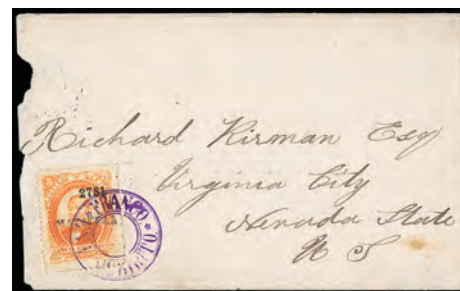 Richard Kirman Esq
Virginia City
Nevada State
U S
2781
FRANCO